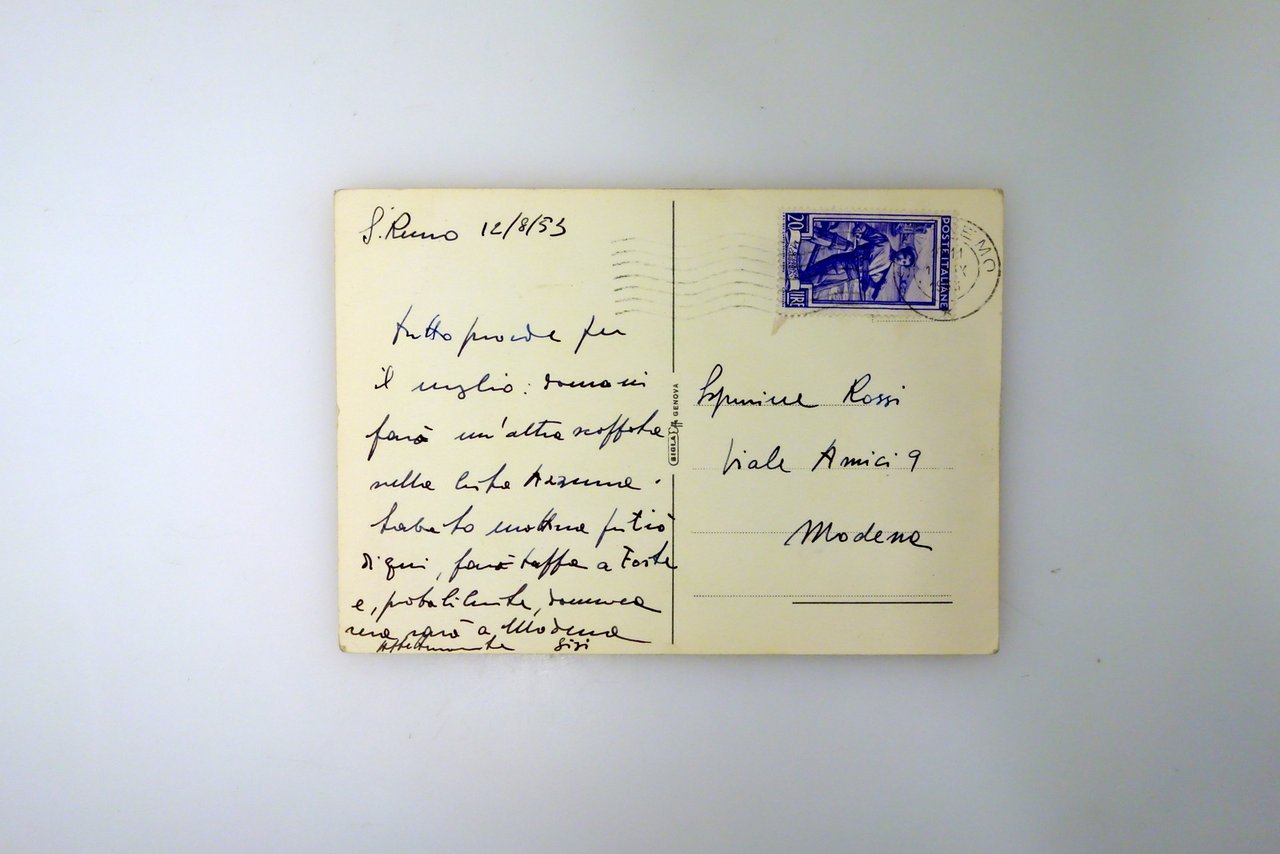 S. Remo 12/8/53
tutto procede per
il meglio: domani
farò un'altra scappata
nella Costa Azzurra.
Sabato mattina partirò
di qui, farò tappa a Forte
e, probabilmente, domenica
sera sarò a Modena
Affettuosamente Gigi
BIGLIA GENOVA
POSTE ITALIANE
20
LIRE
Rossi
Viale Amici 9
Modena